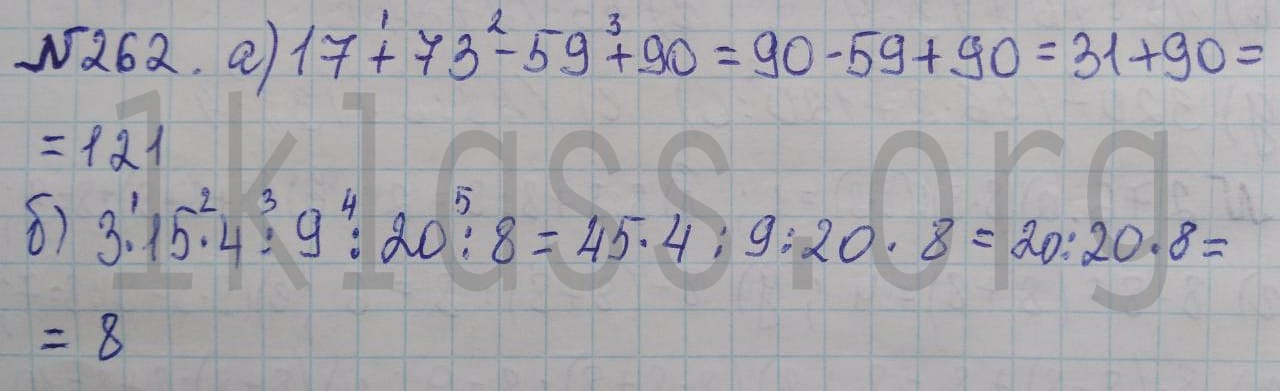 №262. а) 17 + 73 - 59 + 90 = 90 - 59 + 90 = 31 + 90 =
= 121
б) 3 · 15 · 4 : 9 : 20 : 8 = 45 · 4 : 9 : 20 · 8 = 20 : 20 · 8 =
= 8
1klass.org